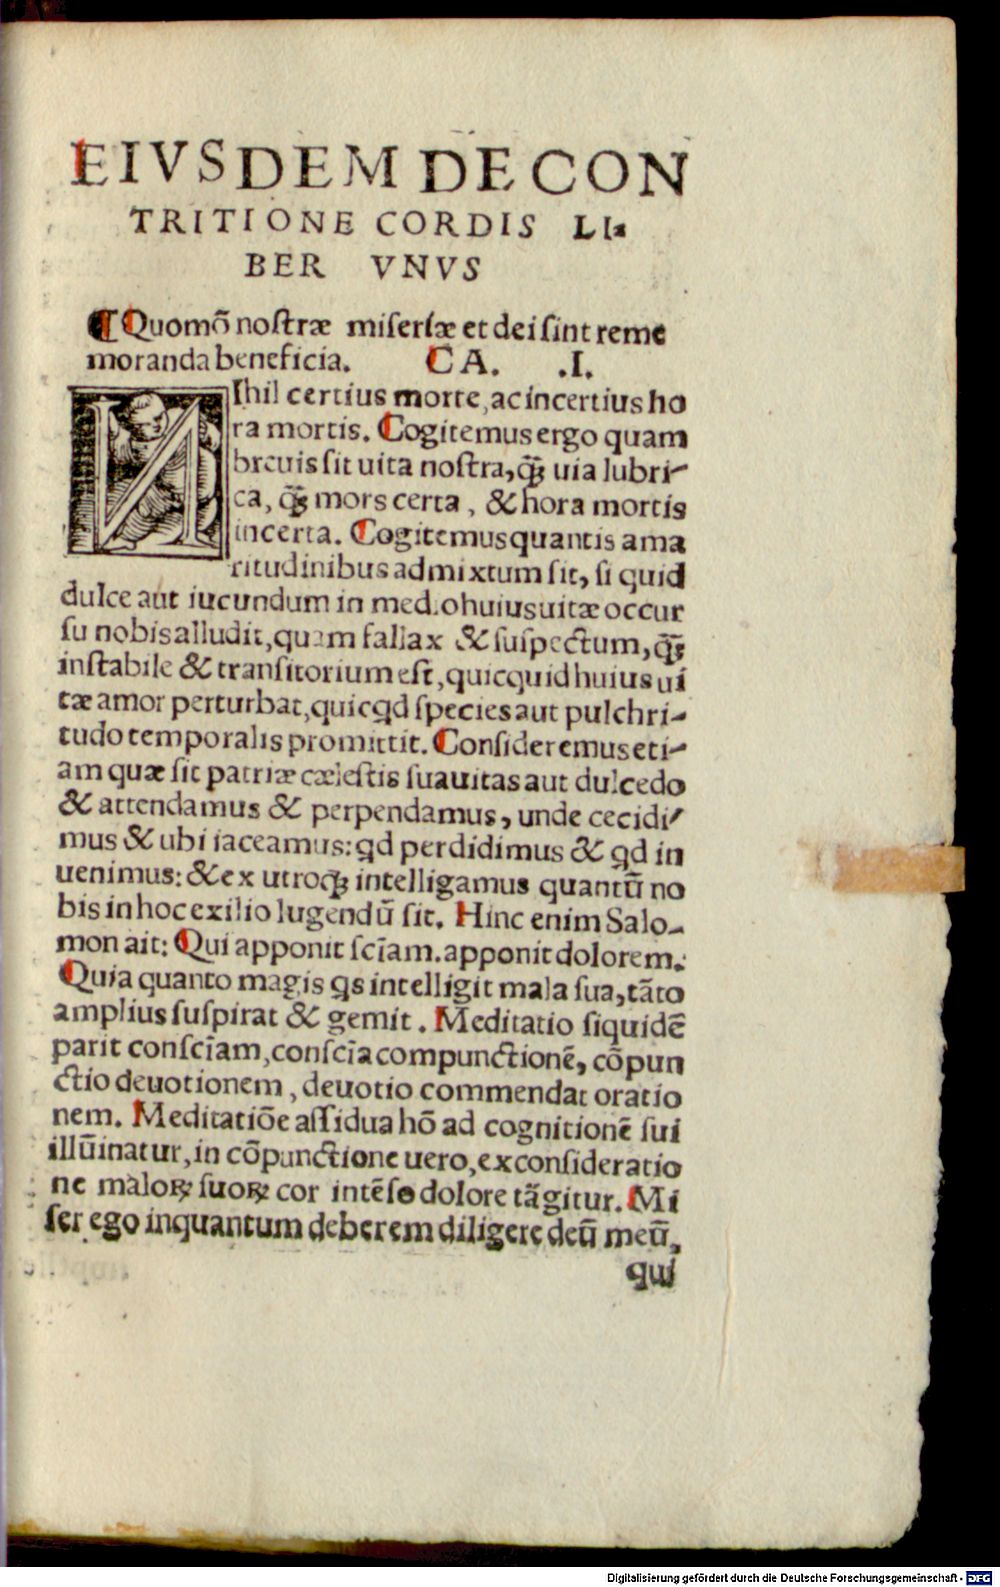 EIVSDEM DE CON
TRITIONE CORDIS LI-
BER VNVS
¶ Quomõ noſtræ miſeriæ et dei ſint reme
moranda beneficia. CA. .I.
NIhil certius morte, ac incertius ho
ra mortis. Cogitemus ergo quam
breuis ſit uita noſtra, q̃ꝫ uia lubri-
ca, q̃ꝫ mors certa, & hora mortis
incerta. Cogitemus quantis ama
ritudinibus admixtum ſit, ſi quid
dulce aut iucundum in medio huius uitæ occur
ſu nobis alludit, quam fallax & ſuſpectum, q̃ꝫ
inſtabile & tranſitorium eſt, quicquid huius ui
tæ amor perturbat, quicqd ſpecies aut pulchri-
tudo temporalis promittit. Conſideremus eti-
am quæ ſit patriæ cæleſtis ſuauitas aut dulcedo
& attendamus & perpendamus, unde cecidi-
mus & ubi iaceamus: qd perdidimus & qd in
uenimus: & ex utroqꝫ intelligamus quantũ no
bis in hoc exilio lugendũ ſit. Hinc enim Salo-
mon ait: Qui apponit ſcĩam. apponit dolorem.
Quia quanto magis qs intelligit mala ſua, tãto
amplius ſuſpirat & gemit. Meditatio ſiquidẽ
parit conſcĩam, conſcĩa compunctionẽ, cõpun
ctio deuotionem, deuotio commendat oratio
nem. Meditatiõe aſſidua hõ ad cognitionẽ ſui
illũinatur, in cõpunctione uero, ex conſideratio
ne maloꝝ ſuoꝝ cor intẽſo dolore tãgitur. Mi
ſer ego inquantum deberem diligere deũ meũ,
qui
Digitalisierung gefördert durch die Deutsche Forschungsgemeinschaft - DFG